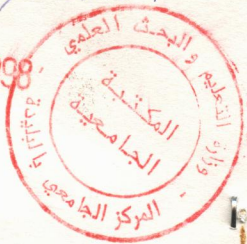 وزارة التعليم و البحث العلمي
المكتبة
الجامعية
المركز الجامعي بالبليدة
98